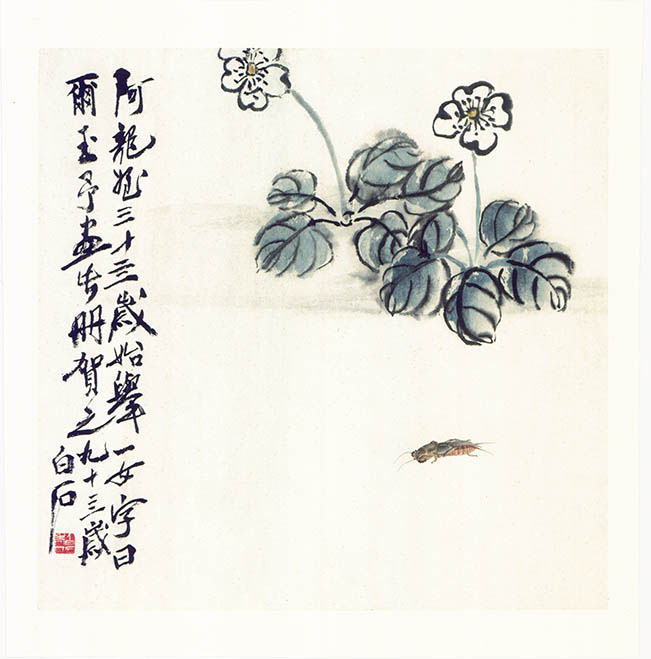 阿龍三十三歲始舉一女字曰
爾玉予畫此册賀之九十三歲
白石